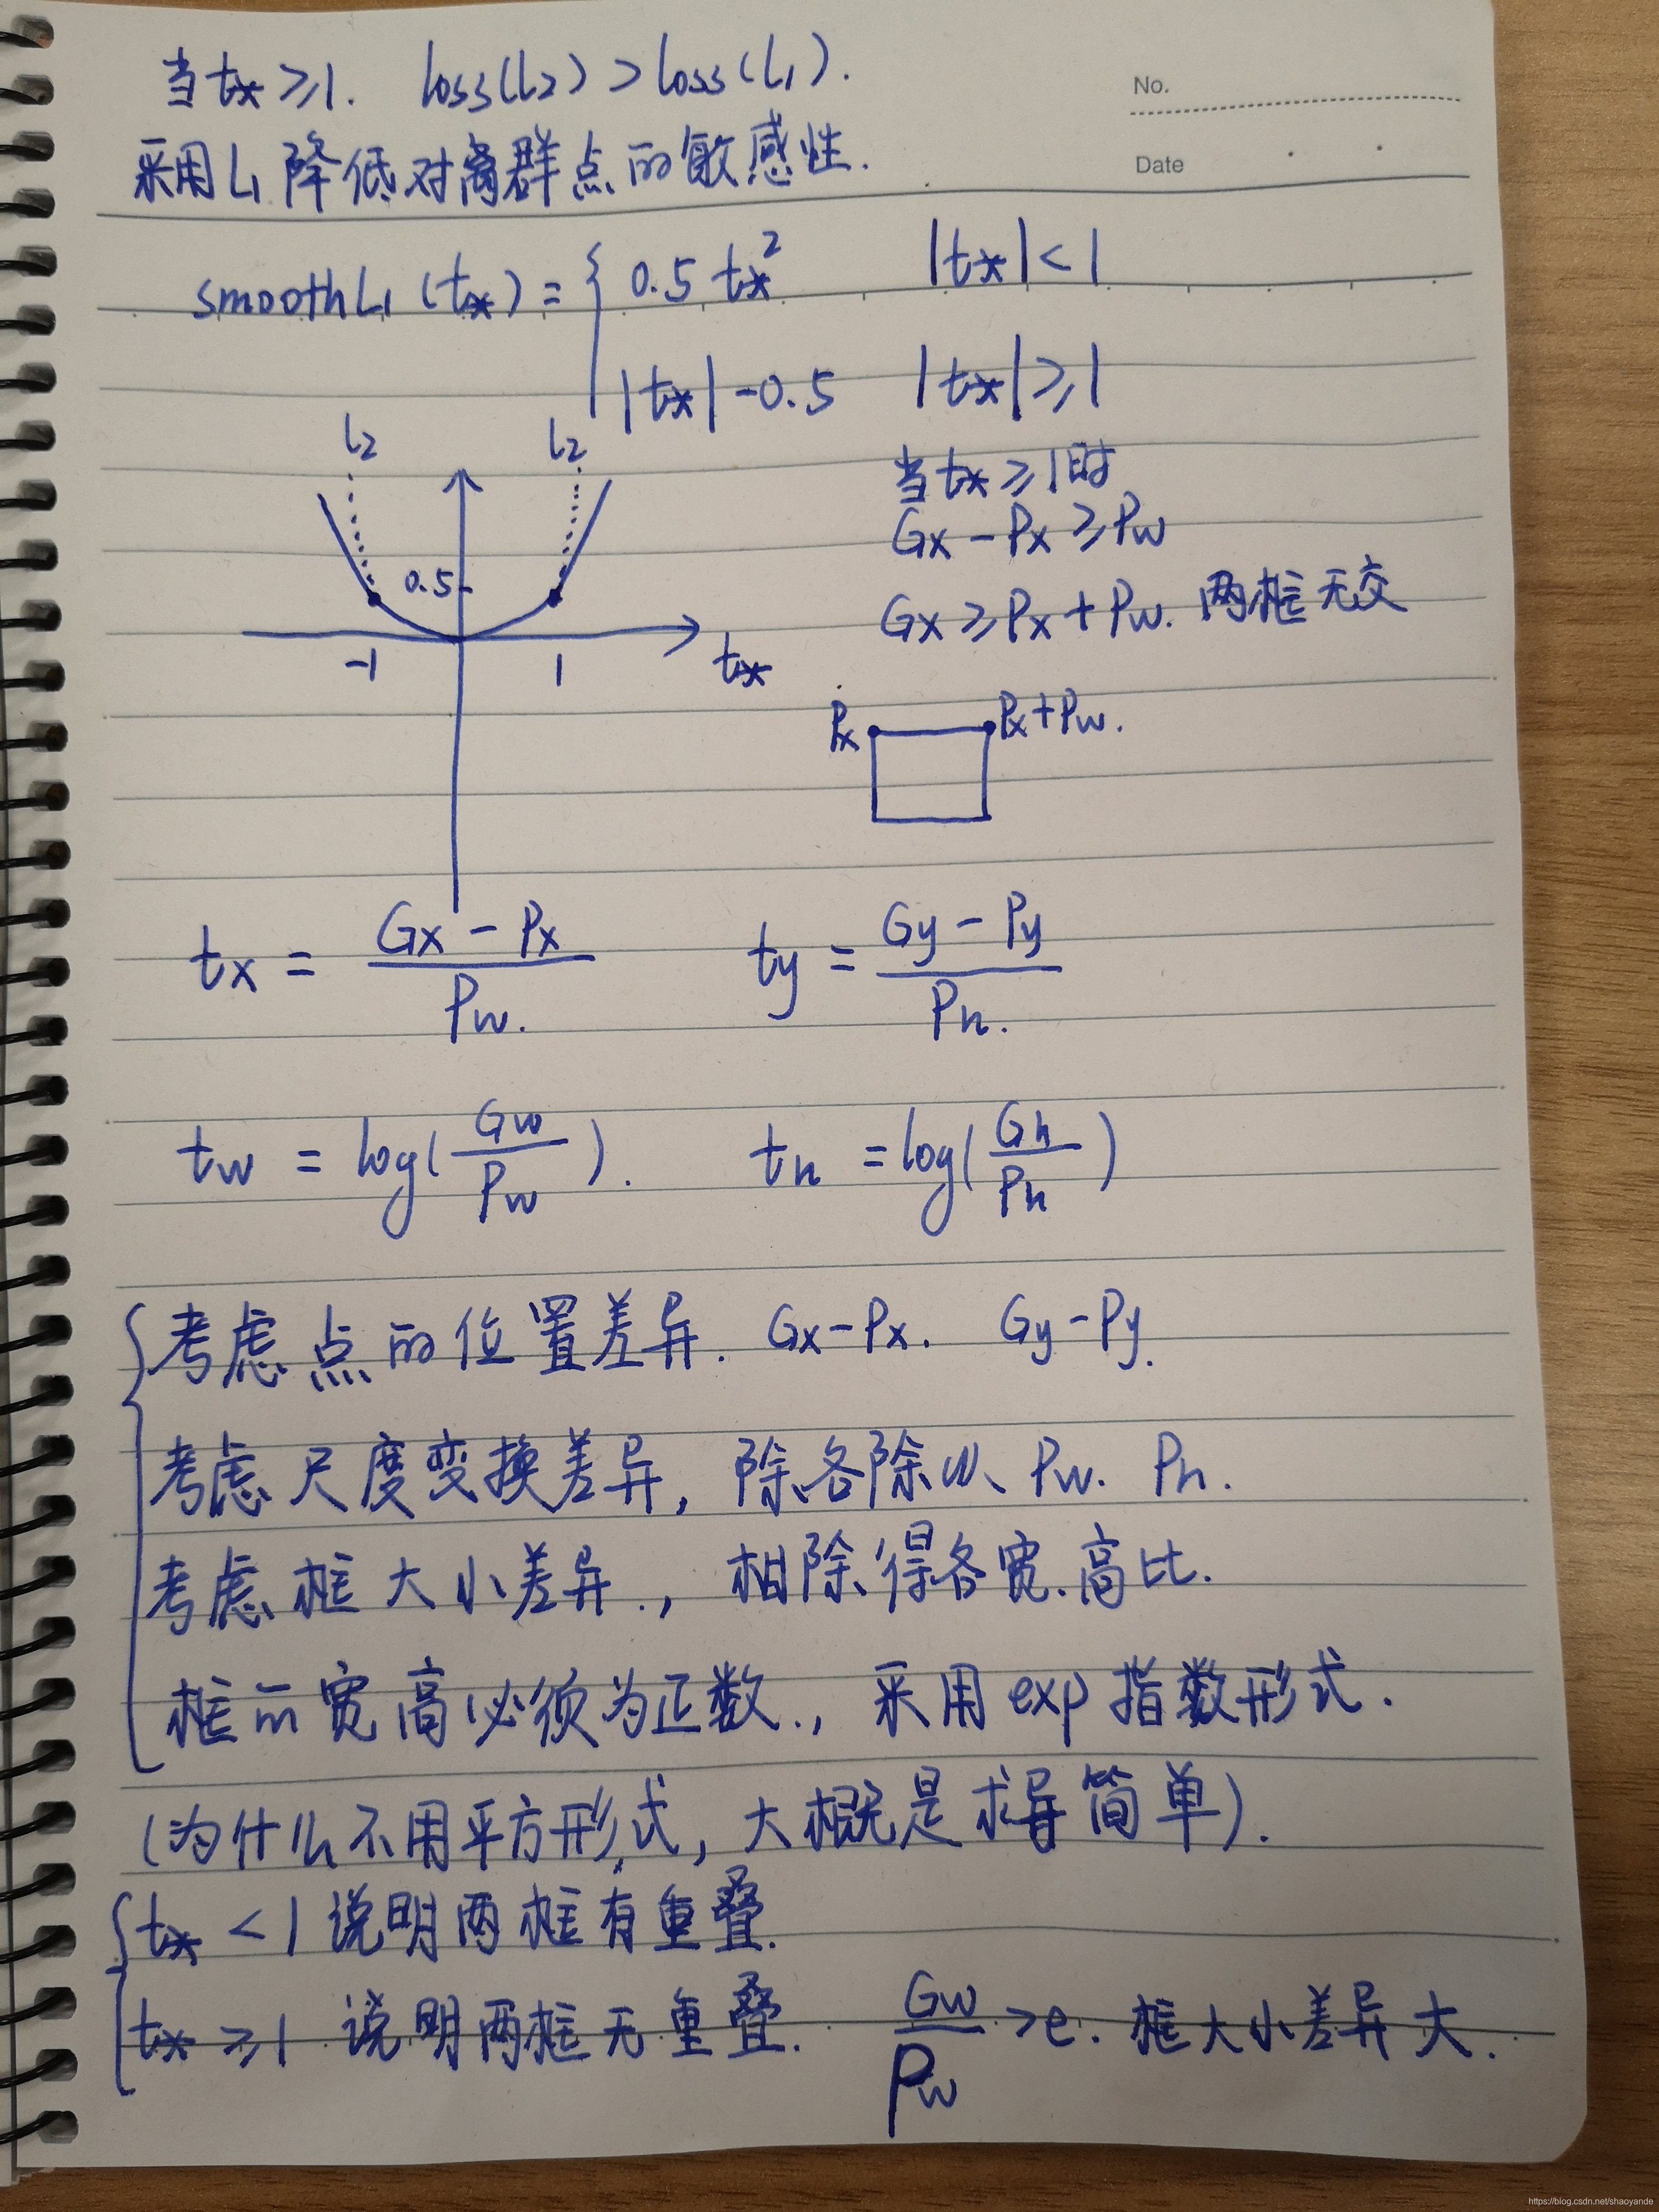 当t* ≥1. loss(L2) > loss(L1).
No.
采用L1降低对离群点的敏感性.
Date
smoothL1(t*) = { 0.5 t*² |t*|<1
|t*|-0.5 |t*|≥1
L2 L2
当t*≥1时
Gx-Px ≥Pw
0.5
Gx ≥Px+Pw. 两框无交
-1 1 t*
Px Px+Pw.
tx = (Gx-Px)/Pw. ty = (Gy-Py)/Ph.
tw = log(Gw/Pw). th = log(Gh/Ph)
考虑点的位置差异. Gx-Px. Gy-Py.
考虑尺度变换差异, 除各除以 Pw. Ph.
考虑框大小差异., 相除得各宽.高比.
框的宽高必须为正数., 采用exp指数形式.
(为什么不用平方形式, 大概是求导简单).
t* <1 说明两框有重叠.
t* ≥1 说明两框无重叠. Gw/Pw >e. 框大小差异大.
https://blog.csdn.net/shaoyande